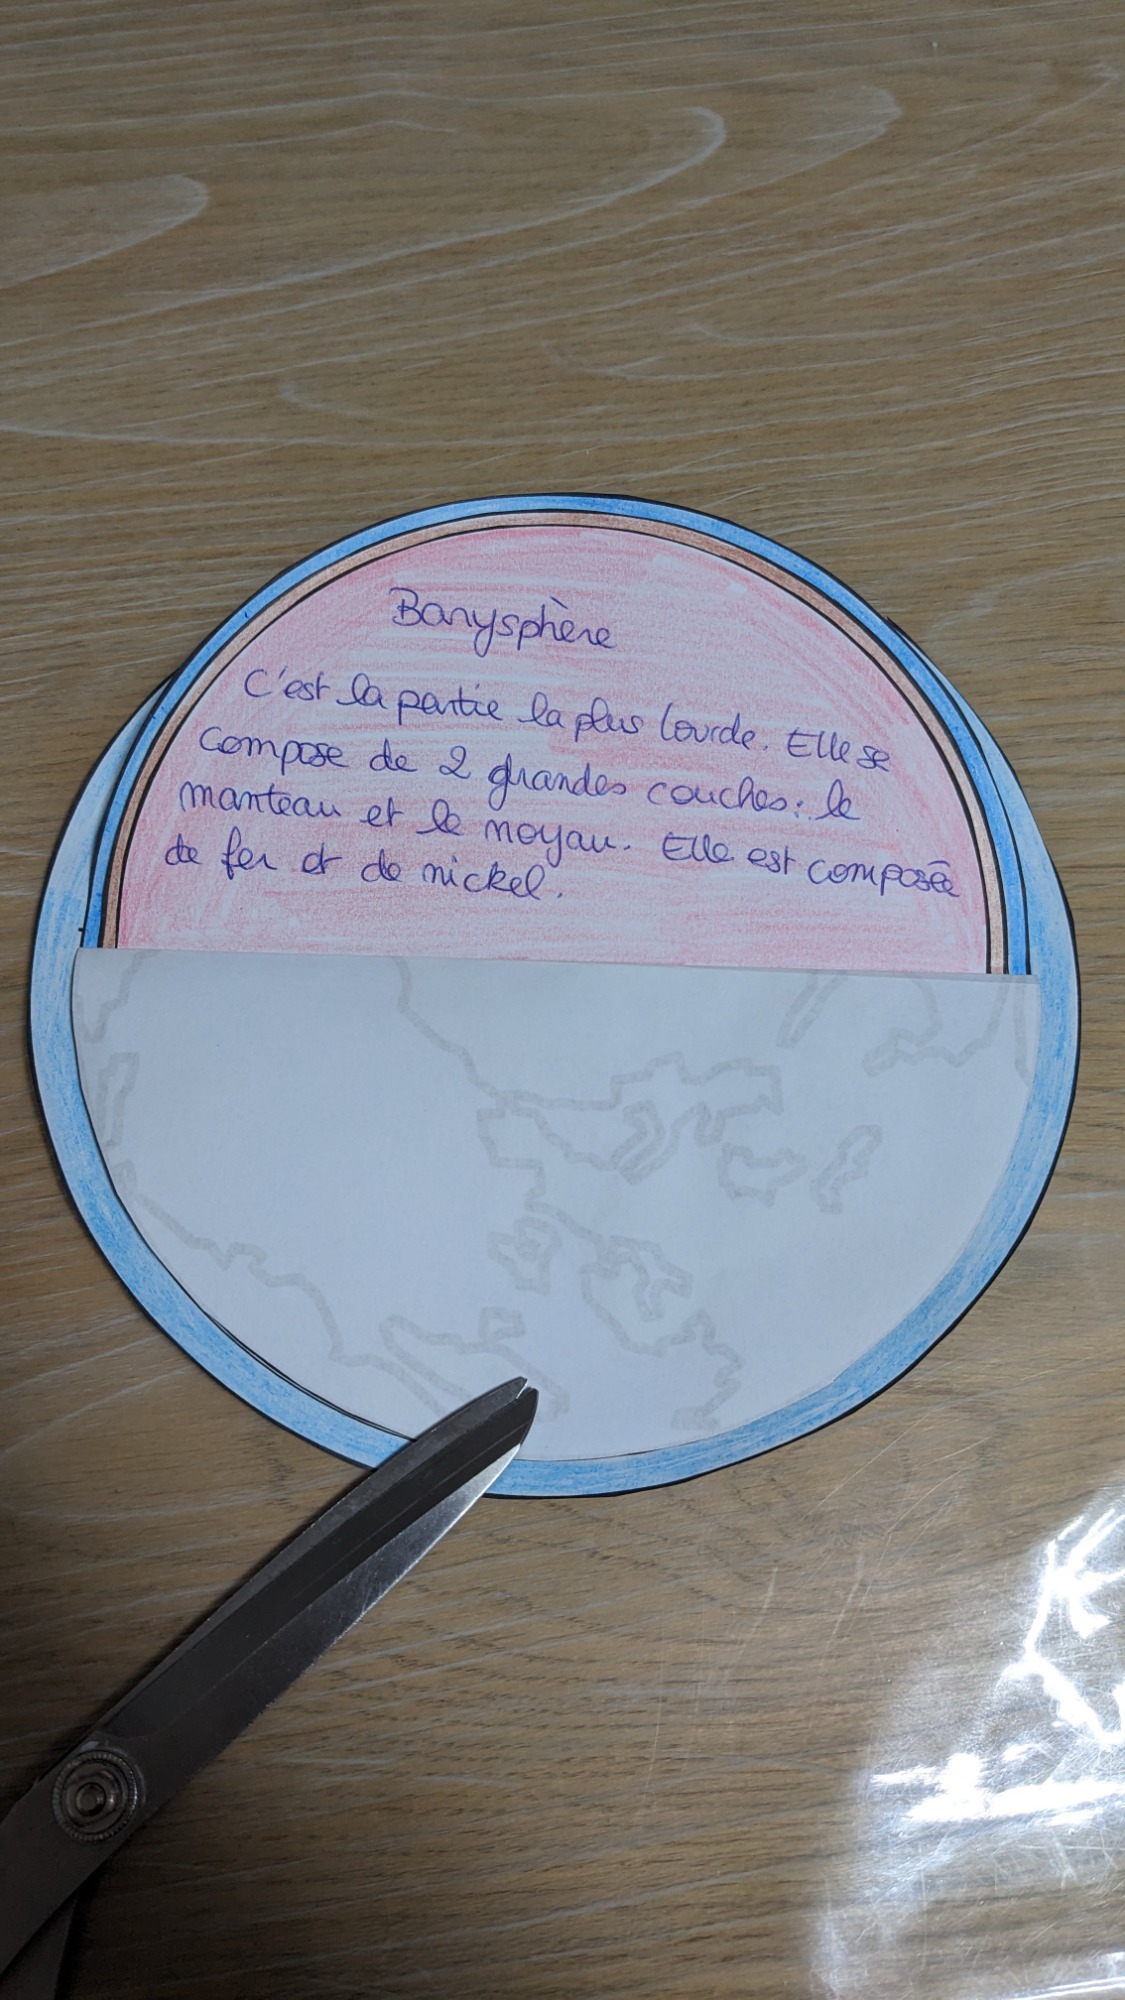 Barysphère
C'est la partie la plus lourde. Elle se
compose de 2 grandes couches: le
manteau et le noyau. Elle est composée
de fer et de nickel.